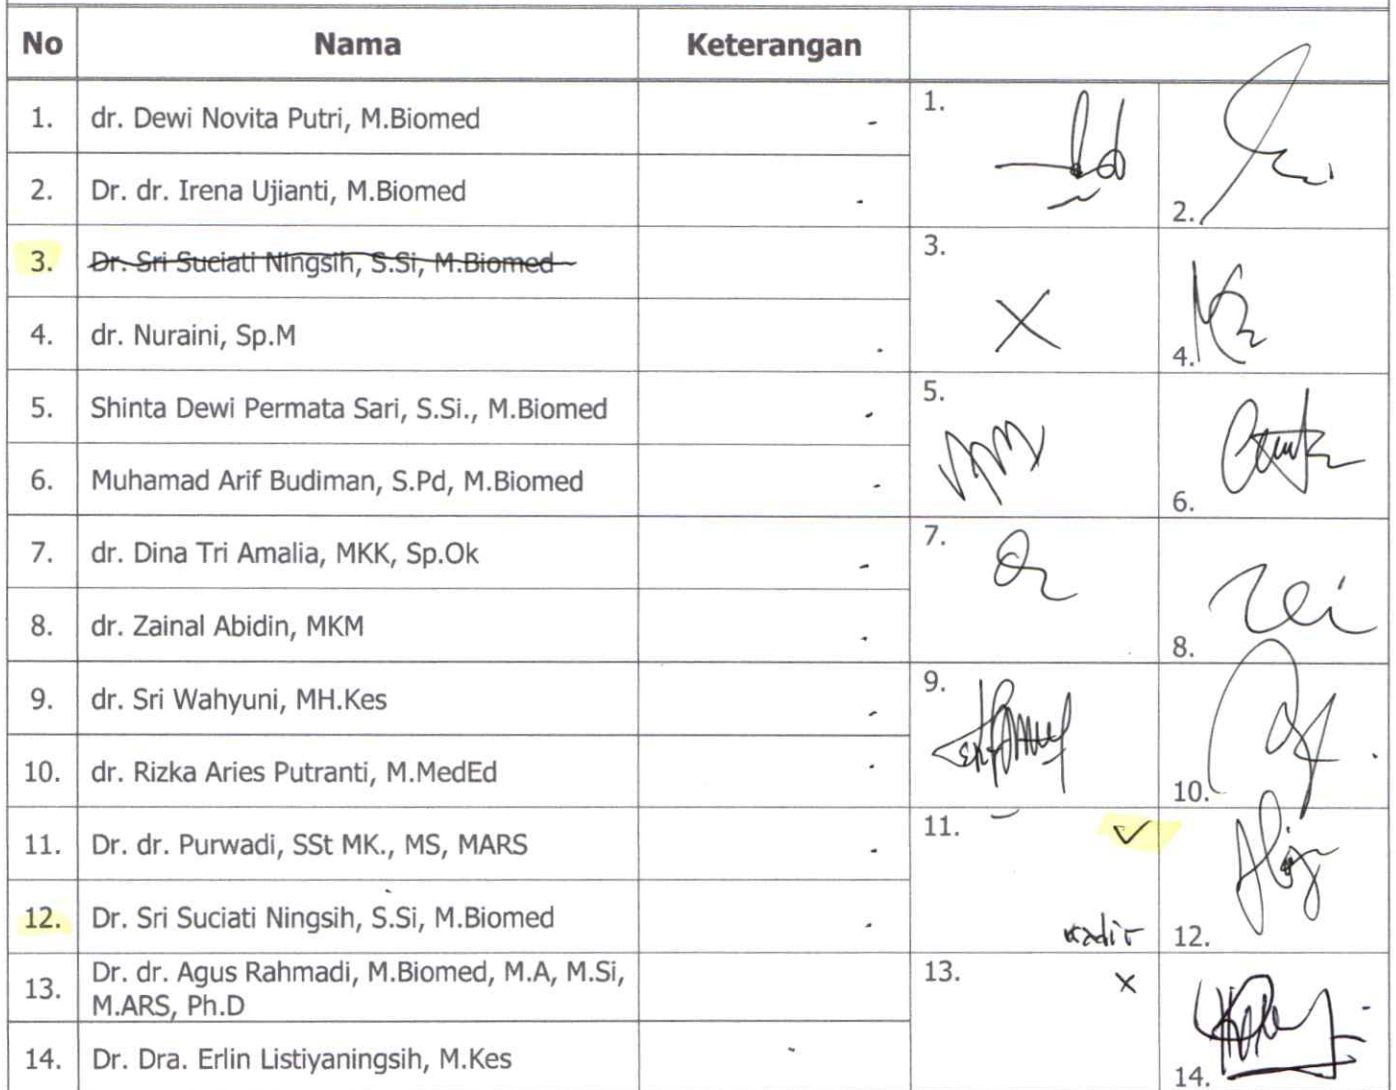 No Nama Keterangan
1. dr. Dewi Novita Putri, M.Biomed - 1.
2. Dr. dr. Irena Ujianti, M.Biomed - 2.
3. Dr. Sri Suciati Ningsih, S.Si, M.Biomed 3. X
4. dr. Nuraini, Sp.M - 4.
5. Shinta Dewi Permata Sari, S.Si., M.Biomed - 5.
6. Muhamad Arif Budiman, S.Pd, M.Biomed - 6.
7. dr. Dina Tri Amalia, MKK, Sp.Ok - 7.
8. dr. Zainal Abidin, MKM - 8.
9. dr. Sri Wahyuni, MH.Kes - 9.
10. dr. Rizka Aries Putranti, M.MedEd - 10.
11. Dr. dr. Purwadi, SSt MK., MS, MARS - 11. ✓
12. Dr. Sri Suciati Ningsih, S.Si, M.Biomed - 12.
13. Dr. dr. Agus Rahmadi, M.Biomed, M.A, M.Si, 13. x
M.ARS, Ph.D
14. Dr. Dra. Erlin Listiyaningsih, M.Kes - 14.